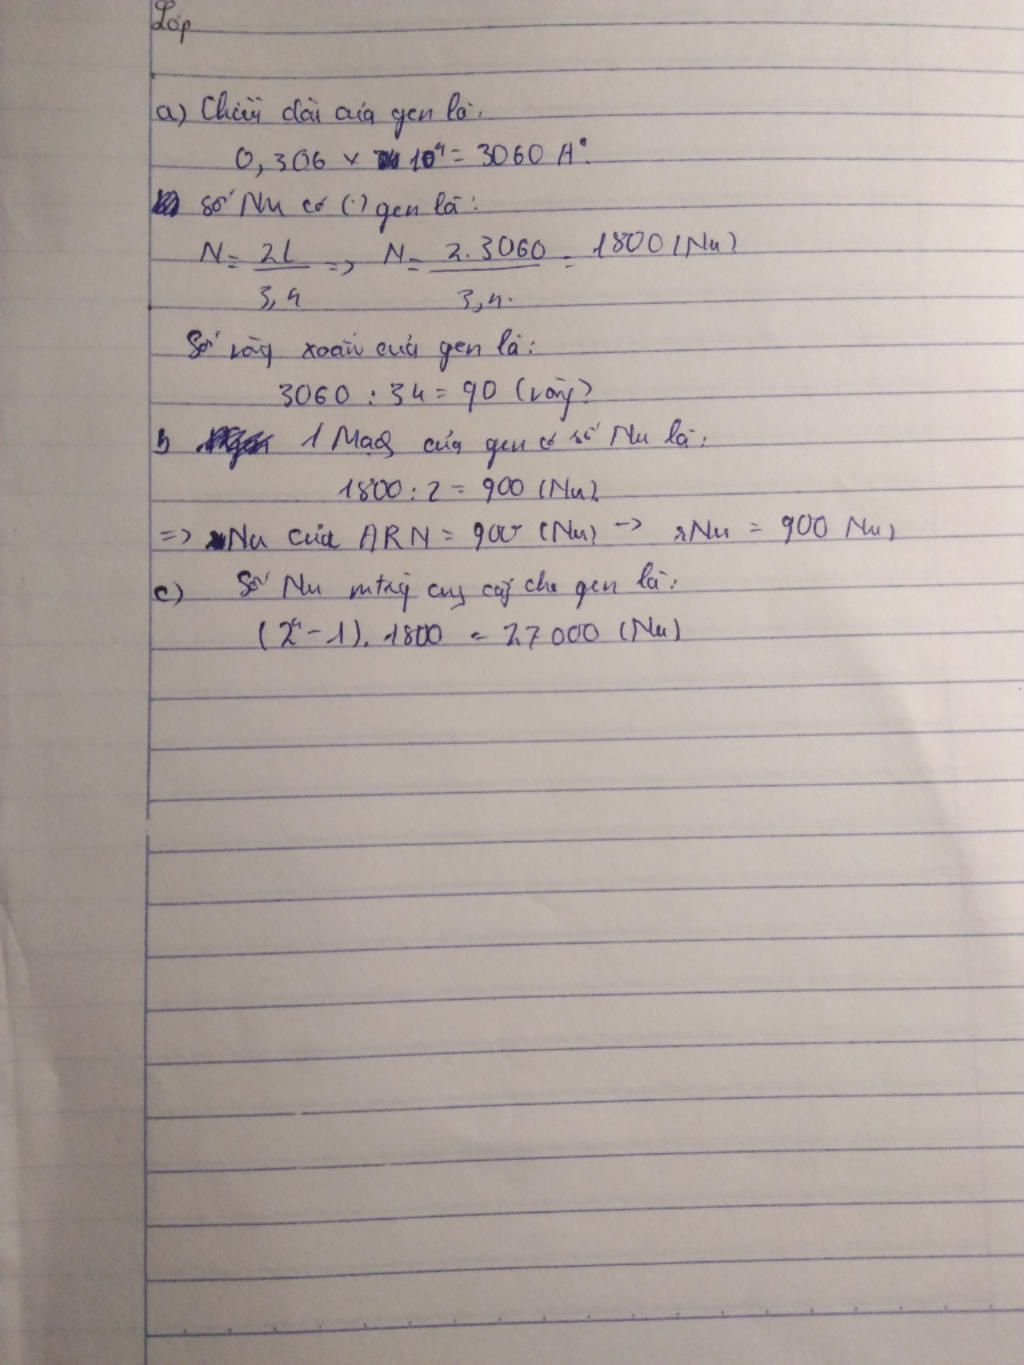 Lớp
a) Chiều dài của gen là:
0,306 x 10⁴ = 3060 A°.
số Nu có (.) gen là:
N = 2L / 3,4 => N = 2.3060 / 3,4. = 1800 (Nu)
Số vòng xoắn của gen là:
3060 : 34 = 90 (vòng)
b 1 Mạch của gen có số Nu là:
1800 : 2 = 900 (Nu)
=> rNu của ARN = 900 (Nu) -> rNu = 900 Nu)
c) Số Nu mtrg cung cấp cho gen là:
(2⁴ - 1). 1800 = 27000 (Nu)